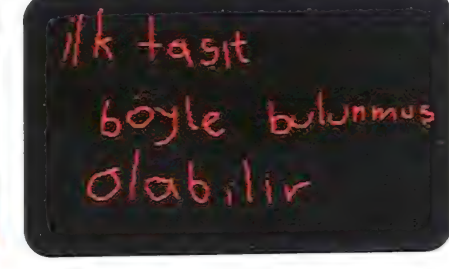 ilk taşıt
boyle bulunmus
olabilir